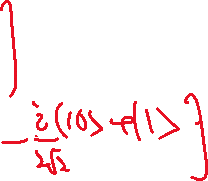 ]
- i/2√2 (|0> + |1> ]